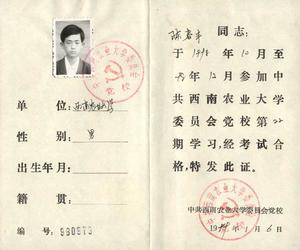 单 位：西南农业大学
性 别： 男
出生年月：
籍 贯：
编 号： 980973
同志：
于 1998 年 10 月至
98 年 12 月参加中
共西南农业大学
委员会党校第22
期学习，经考试合
格，特发此证。
中共西南农业大学委员会党校
1999年1月6日